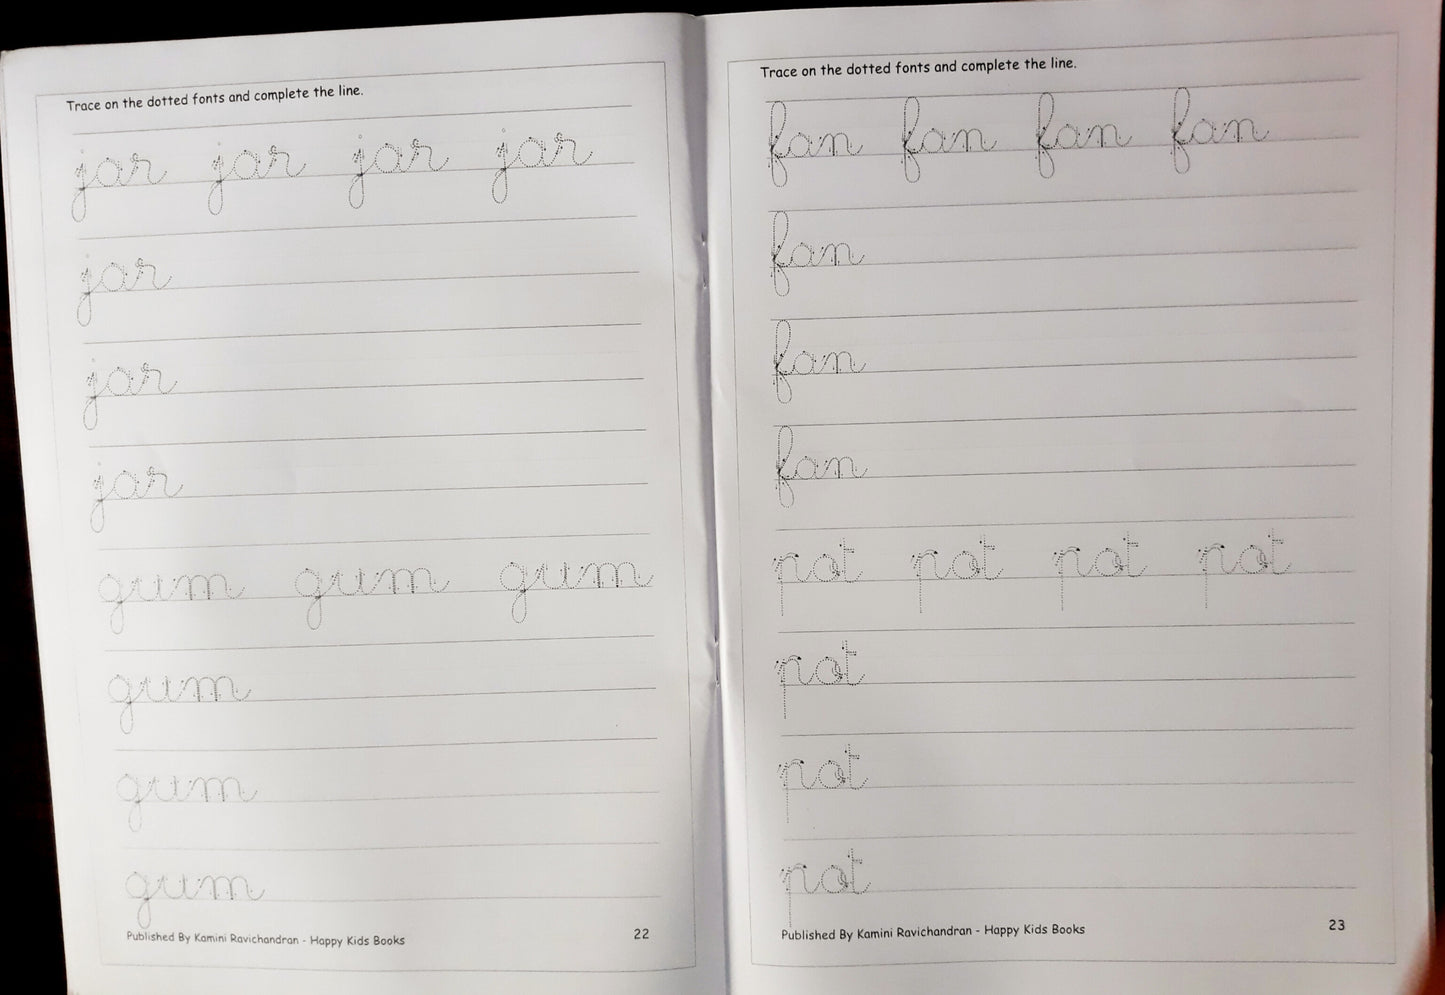 Trace on the dotted fonts and complete the line.
jar jar jar jar
jar
jar
jar
gum gum gum
gum
gum
gum
Published By Kamini Ravichandran - Happy Kids Books
22
Trace on the dotted fonts and complete the line.
fan fan fan fan
fan
fan
fan
pot pot pot pot
pot
pot
pot
Published By Kamini Ravichandran - Happy Kids Books
23